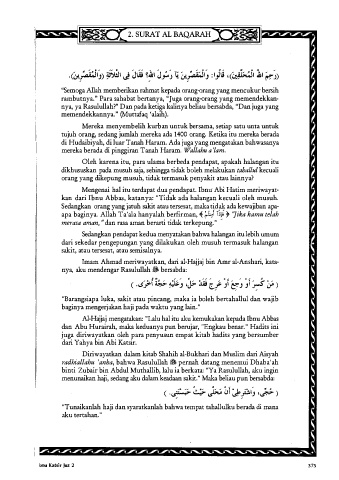 2. SURAT AL BAQARAH
(رَحِمَ اللَّهُ الْمُحَلِّقِيْنَ)، قَالُوا: وَالْمُقَصِّرِيْنَ يَا رَسُوْلَ اللَّهِ؟ فَقَالَ فِي الثَّالِثَةِ (وَالْمُقَصِّرِيْنَ).
"Semoga Allah memberikan rahmat kepada orang-orang yang mencukur bersih
rambutnya." Para sahabat bertanya, "Juga orang-orang yang memendekkan-
nya, ya Rasulullah?" Dan pada ketiga kalinya beliau bersabda, "Dan juga yang
memendekkannya." (Muttafaq 'alaih).
Mereka menyembelih kurban untuk bersama, setiap satu unta untuk
tujuh orang, sedang jumlah mereka ada 1400 orang. Ketika itu mereka berada
di Hudaibiyah, di luar Tanah Haram. Ada juga yang mengatakan bahwasanya
mereka berada di pinggiran Tanah Haram. Wallahu a'lam.
Oleh karena itu, para ulama berbeda pendapat, apakah halangan itu
dikhususkan pada musuh saja, sehingga tidak boleh melakukan tahallul kecuali
orang yang dikepung musuh, tidak termasuk penyakit atau lainnya?
Mengenai hal itu terdapat dua pendapat. Ibnu Abi Hatim meriwayat-
kan dari Ibnu Abbas, katanya: "Tidak ada halangan kecuali oleh musuh.
Sedangkan orang yang jatuh sakit atau tersesat, maka tidak ada kewajiban apa-
apa baginya. Allah Ta'ala hanyalah berfirman, ﴿ فَإِذَا أَمِنتُمْ ﴾ "Jika kamu telah
merasa aman," dan rasa aman berarti tidak terkepung."
Sedangkan pendapat kedua menyatakan bahwa halangan itu lebih umum
dari sekedar pengepungan yang dilakukan oleh musuh termasuk halangan
sakit, atau tersesat, atau semisalnya.
Imam Ahmad meriwayatkan, dari al-Hajjaj bin Amr al-Anshari, kata-
nya, aku mendengar Rasulullah ﷺ bersabda:
( مَنْ كُسِرَ أَوْ وَجِعَ أَوْ عَرِجَ فَقَدْ حَلَّ، وَعَلَيْهِ حَجَّةٌ أُخْرَى. )
"Barangsiapa luka, sakit atau pincang, maka ia boleh bertahallul dan wajib
baginya mengerjakan haji pada waktu yang lain."
Al-Hajjaj mengatakan: "Lalu hal itu aku kemukakan kepada Ibnu Abbas
dan Abu Hurairah, maka keduanya pun berujar, "Engkau benar." Hadits ini
juga diriwayatkan oleh para penyusun empat kitab hadits yang bersumber
dari Yahya bin Abi Katsir.
Diriwayatkan dalam kitab Shahih al-Bukhari dan Muslim dari Aisyah
radhiallahu 'anha, bahwa Rasulullah ﷺ pernah datang menemui Dhuba'ah
binti Zubair bin Abdul Muthallib, lalu ia berkata: "Ya Rasulullah, aku ingin
menunaikan haji, sedang aku dalam keadaan sakit." Maka beliau pun bersabda:
( حُجِّي، وَاشْتَرِطِيْ أَنَّ مَحَلِّي حَيْثُ حَبَسْتَنِي. )
"Tunaikanlah haji dan syaratkanlah bahwa tempat tahallulku berada di mana
aku tertahan."
Ibnu Katsir Juz 2
375